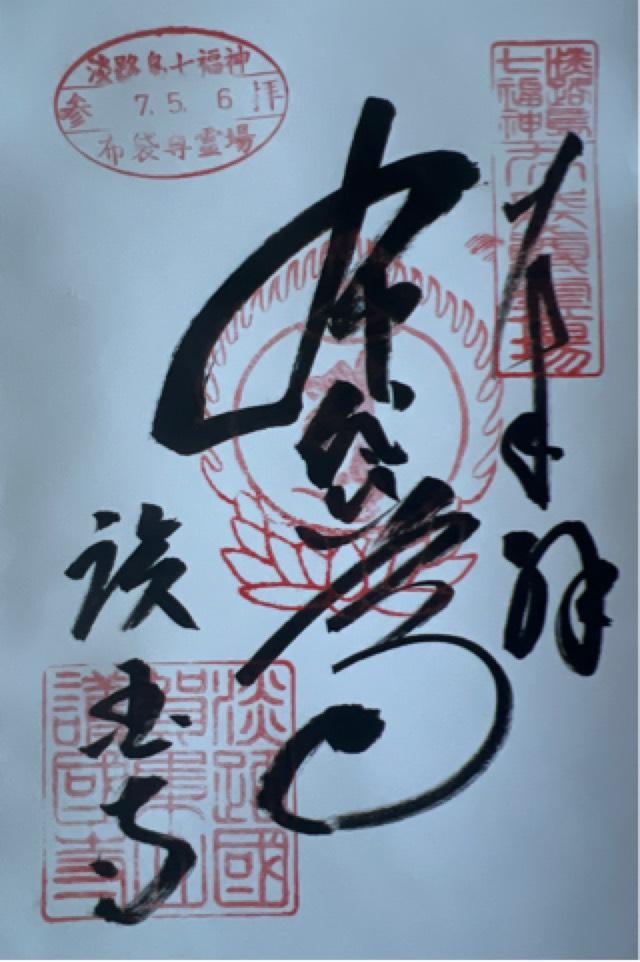 淡路島七福神
参 7.5.6 拝
布袋尊霊場
淡路島
七福神
布袋尊霊場
奉拝
布袋尊
護国寺
淡路國
賀集山
護國寺